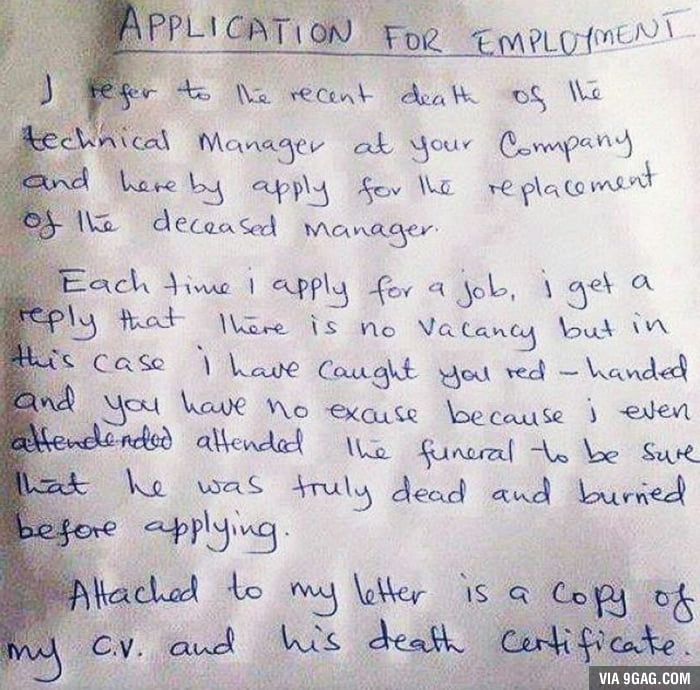 APPLICATION FOR EMPLOYMENT
I refer to the recent death of the
technical Manager at your Company
and here by apply for the replacement
of the deceased manager.
Each time i apply for a job, i get a
reply that there is no vacancy but in
this case i have caught you red-handed
and you have no excuse because i even
attendended attended the funeral to be sure
that he was truly dead and burried
before applying.
Attached to my letter is a copy of
my C.V. and his death certificate.
VIA 9GAG.COM